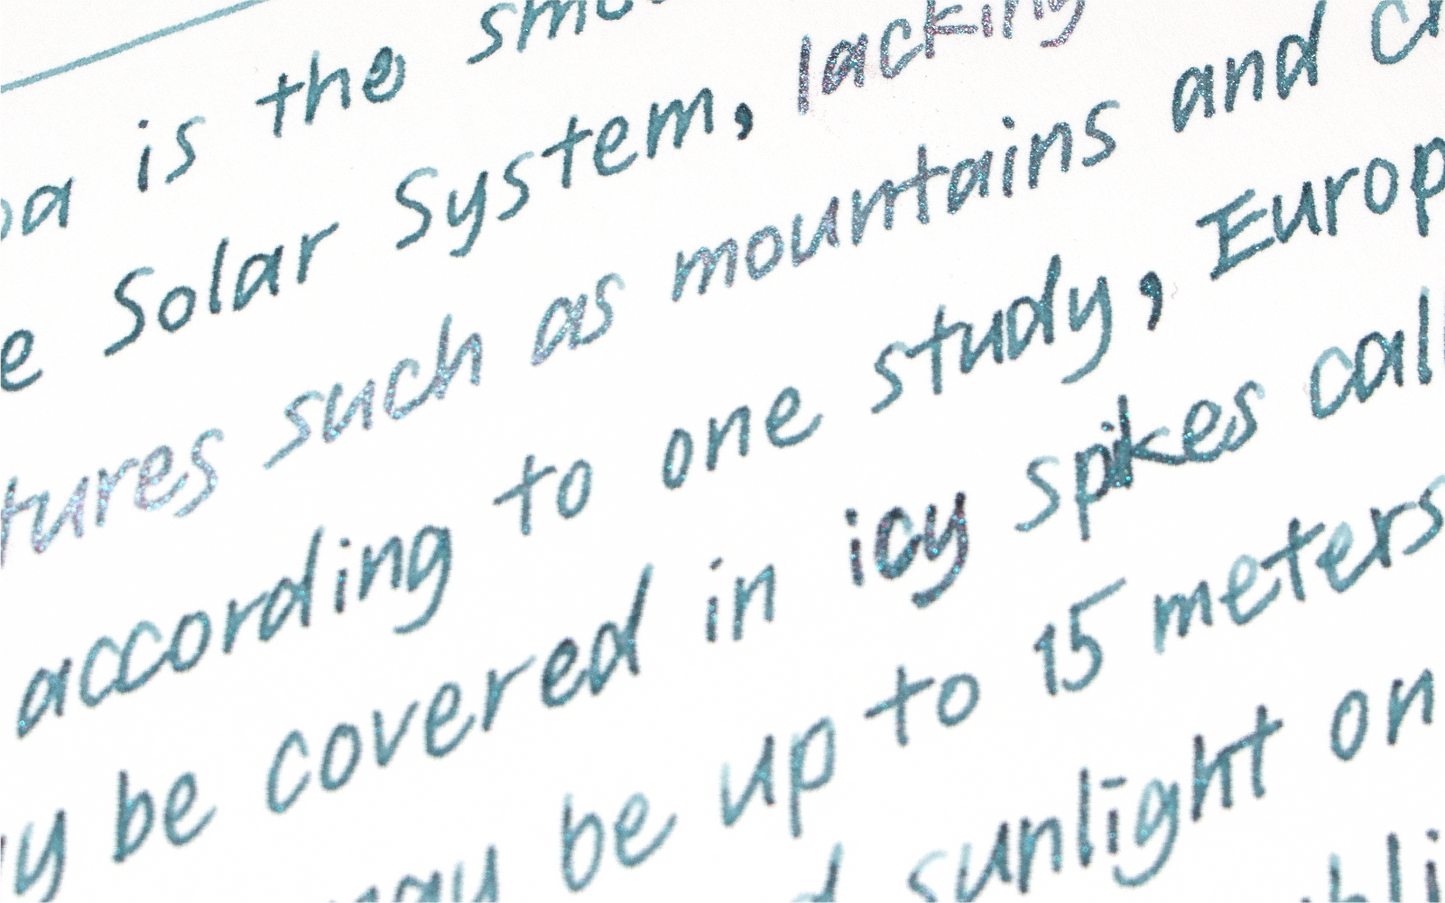 is the
Solar System, lacking
such as mountains and
according to one study, Europ
be covered in icy spikes call
be up to 15 meters
sunlight on